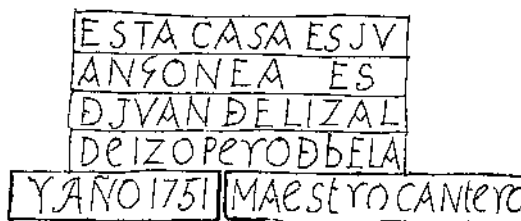 ESTA CASA ESJV
ANSONEA ES
ÐJVAN ÐELIZAL
DeIZOPeroÐbELA
YAÑO1751 MAestroCANtero